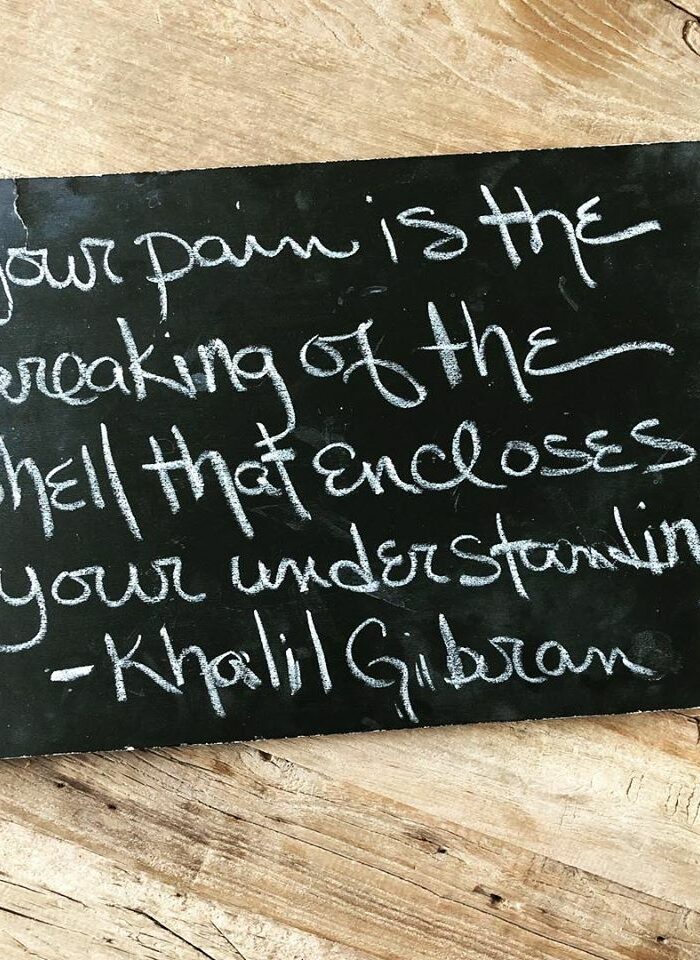 your pain is the
breaking of the
shell that encloses
your understandin
- Khalil Gibran